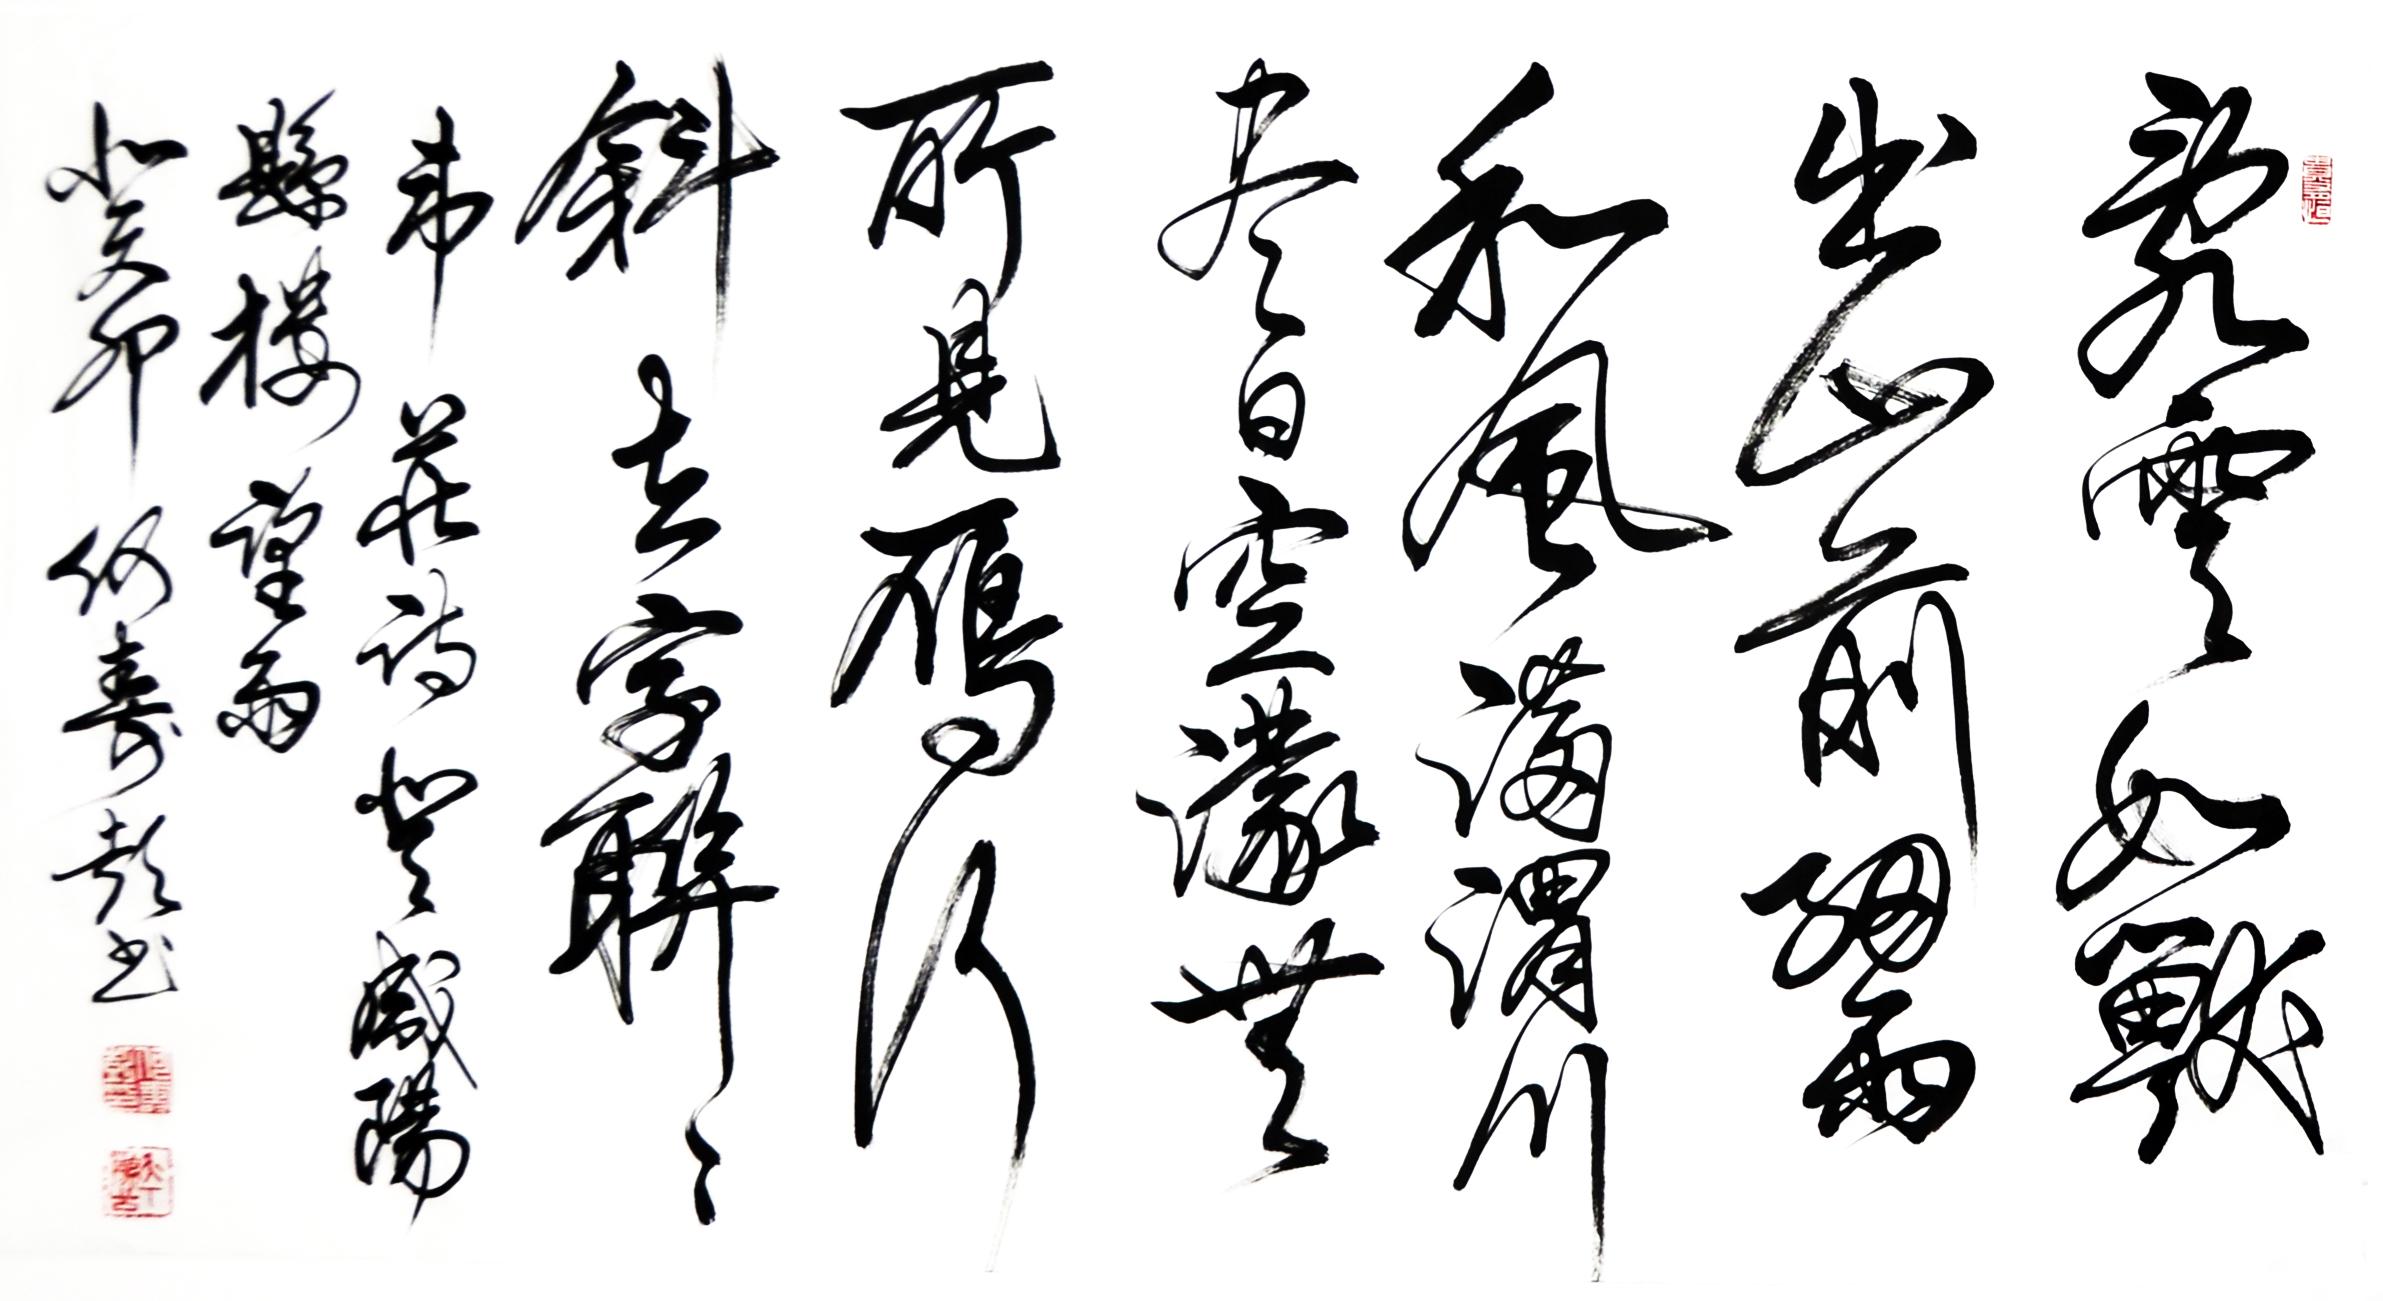 亂雲如獸
出山前細雨
和風滿渭川
盡日空濛無
所見鴈行
斜去字聯〻
韋莊詩登咸陽
縣樓望雨
癸卯何壽彭书